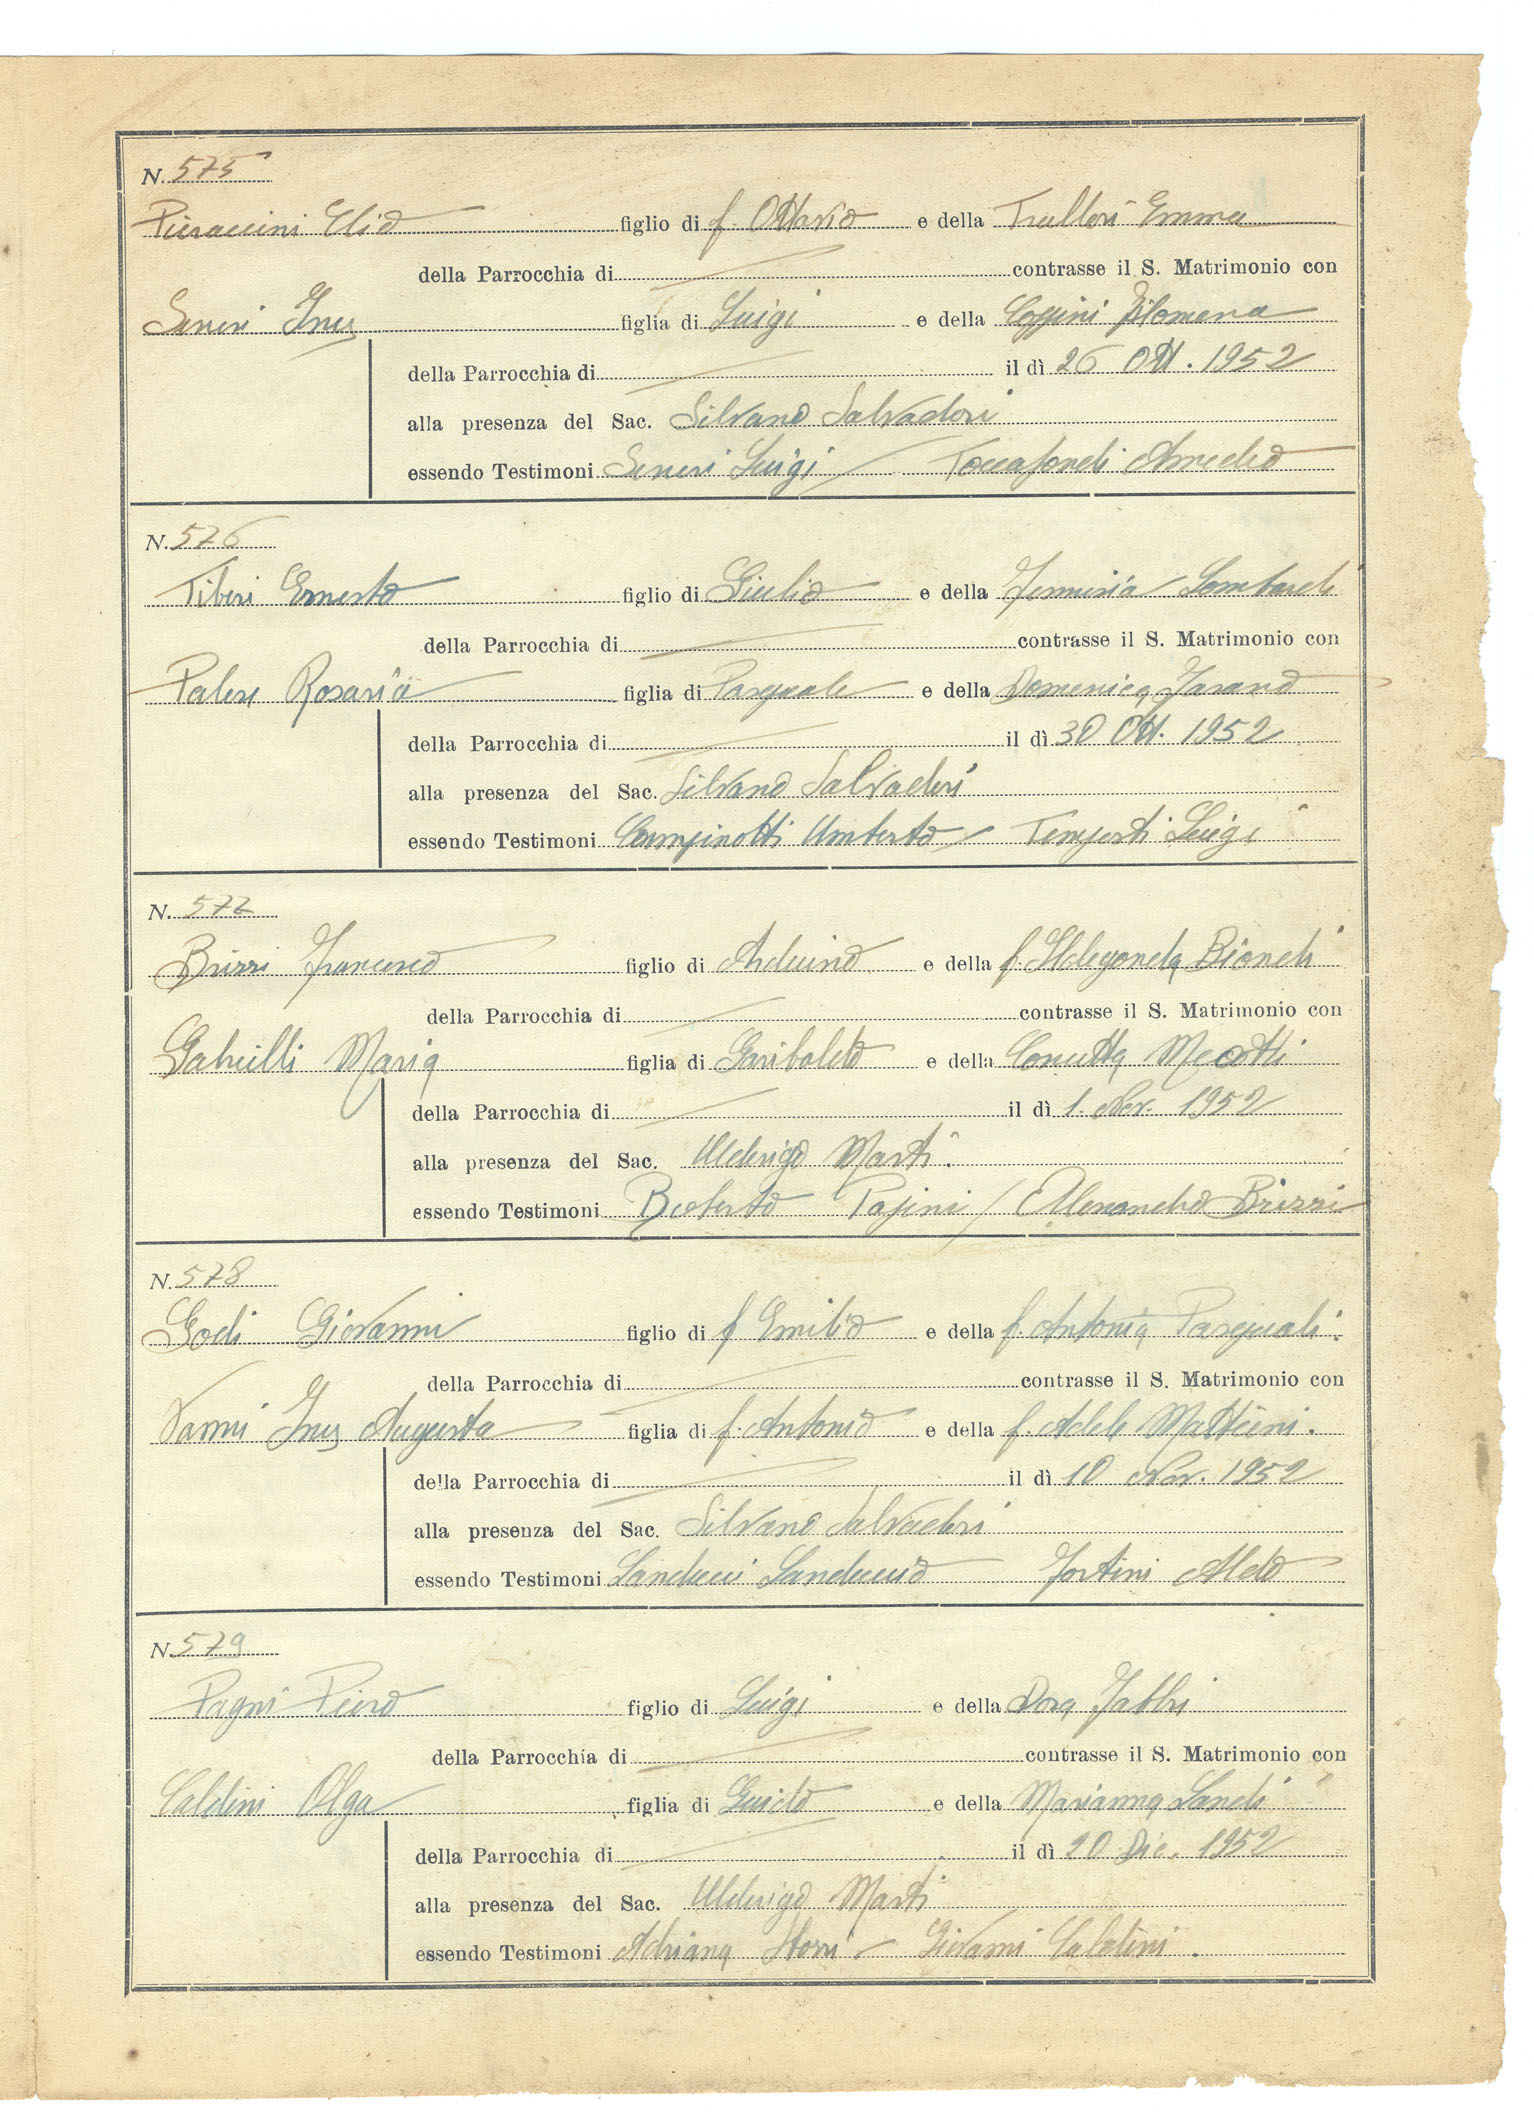 N. 575
Pieraccini Elio figlio di f. Ottavio e della Trallori Emma
della Parrocchia di contrasse il S. Matrimonio con
Seneri Ines figlia di Luigi e della Coppini Filomena
della Parrocchia di il dì 26 Ott. 1952
alla presenza del Sac. Silvano Salvadori
essendo Testimoni Seneri Luigi / Toccafondi Amedeo
N. 576
Tiberi Ernesto figlio di Giulio e della Lombardi
della Parrocchia di contrasse il S. Matrimonio con
Palese Rosaria figlia di Pasquale e della Domenica
della Parrocchia di il dì 30 Ott. 1952
alla presenza del Sac. Silvano Salvadori
essendo Testimoni Campinotti Umberto / Tempesti Luigi
N. 577
Brizzi Francesco figlio di Arduino e della f. Ildegonda Biondi
della Parrocchia di contrasse il S. Matrimonio con
Gabrielli Maria figlia di Garibaldo e della Concetta Meotti
della Parrocchia di il dì 1. Nov. 1952
alla presenza del Sac. Ulderigo Marti.
essendo Testimoni Roberto Pasini / Alessandro Brizzi
N. 578
Godi Giovanni figlio di f Emilio e della f. Antonia Pasquali.
della Parrocchia di contrasse il S. Matrimonio con
Vanni Ines Augusta figlia di f. Antonio e della f. Adele Mattieini.
della Parrocchia di il dì 10 Nov. 1952
alla presenza del Sac. Silvano Salvadori
essendo Testimoni Landucci Landuccio Fortini Aldo
N. 579
Pagni Piero figlio di Luigi e della Dora Fabbri
della Parrocchia di contrasse il S. Matrimonio con
Caldini Olga figlia di Guido e della Marianna Landi
della Parrocchia di il dì 20 Dic. 1952
alla presenza del Sac. Ulderigo Marti
essendo Testimoni Adriana / Giovanni Caldini.